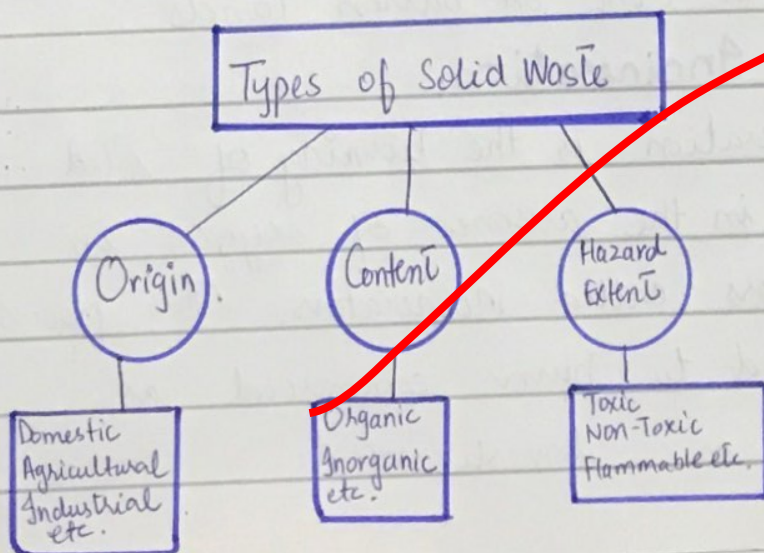 Types of Solid Waste
Origin.
Content
Hazard
Extent
Domestic
Agricultural
Industrial
etc.
Organic
Inorganic
etc.
Toxic
Non-Toxic
Flammable etc.